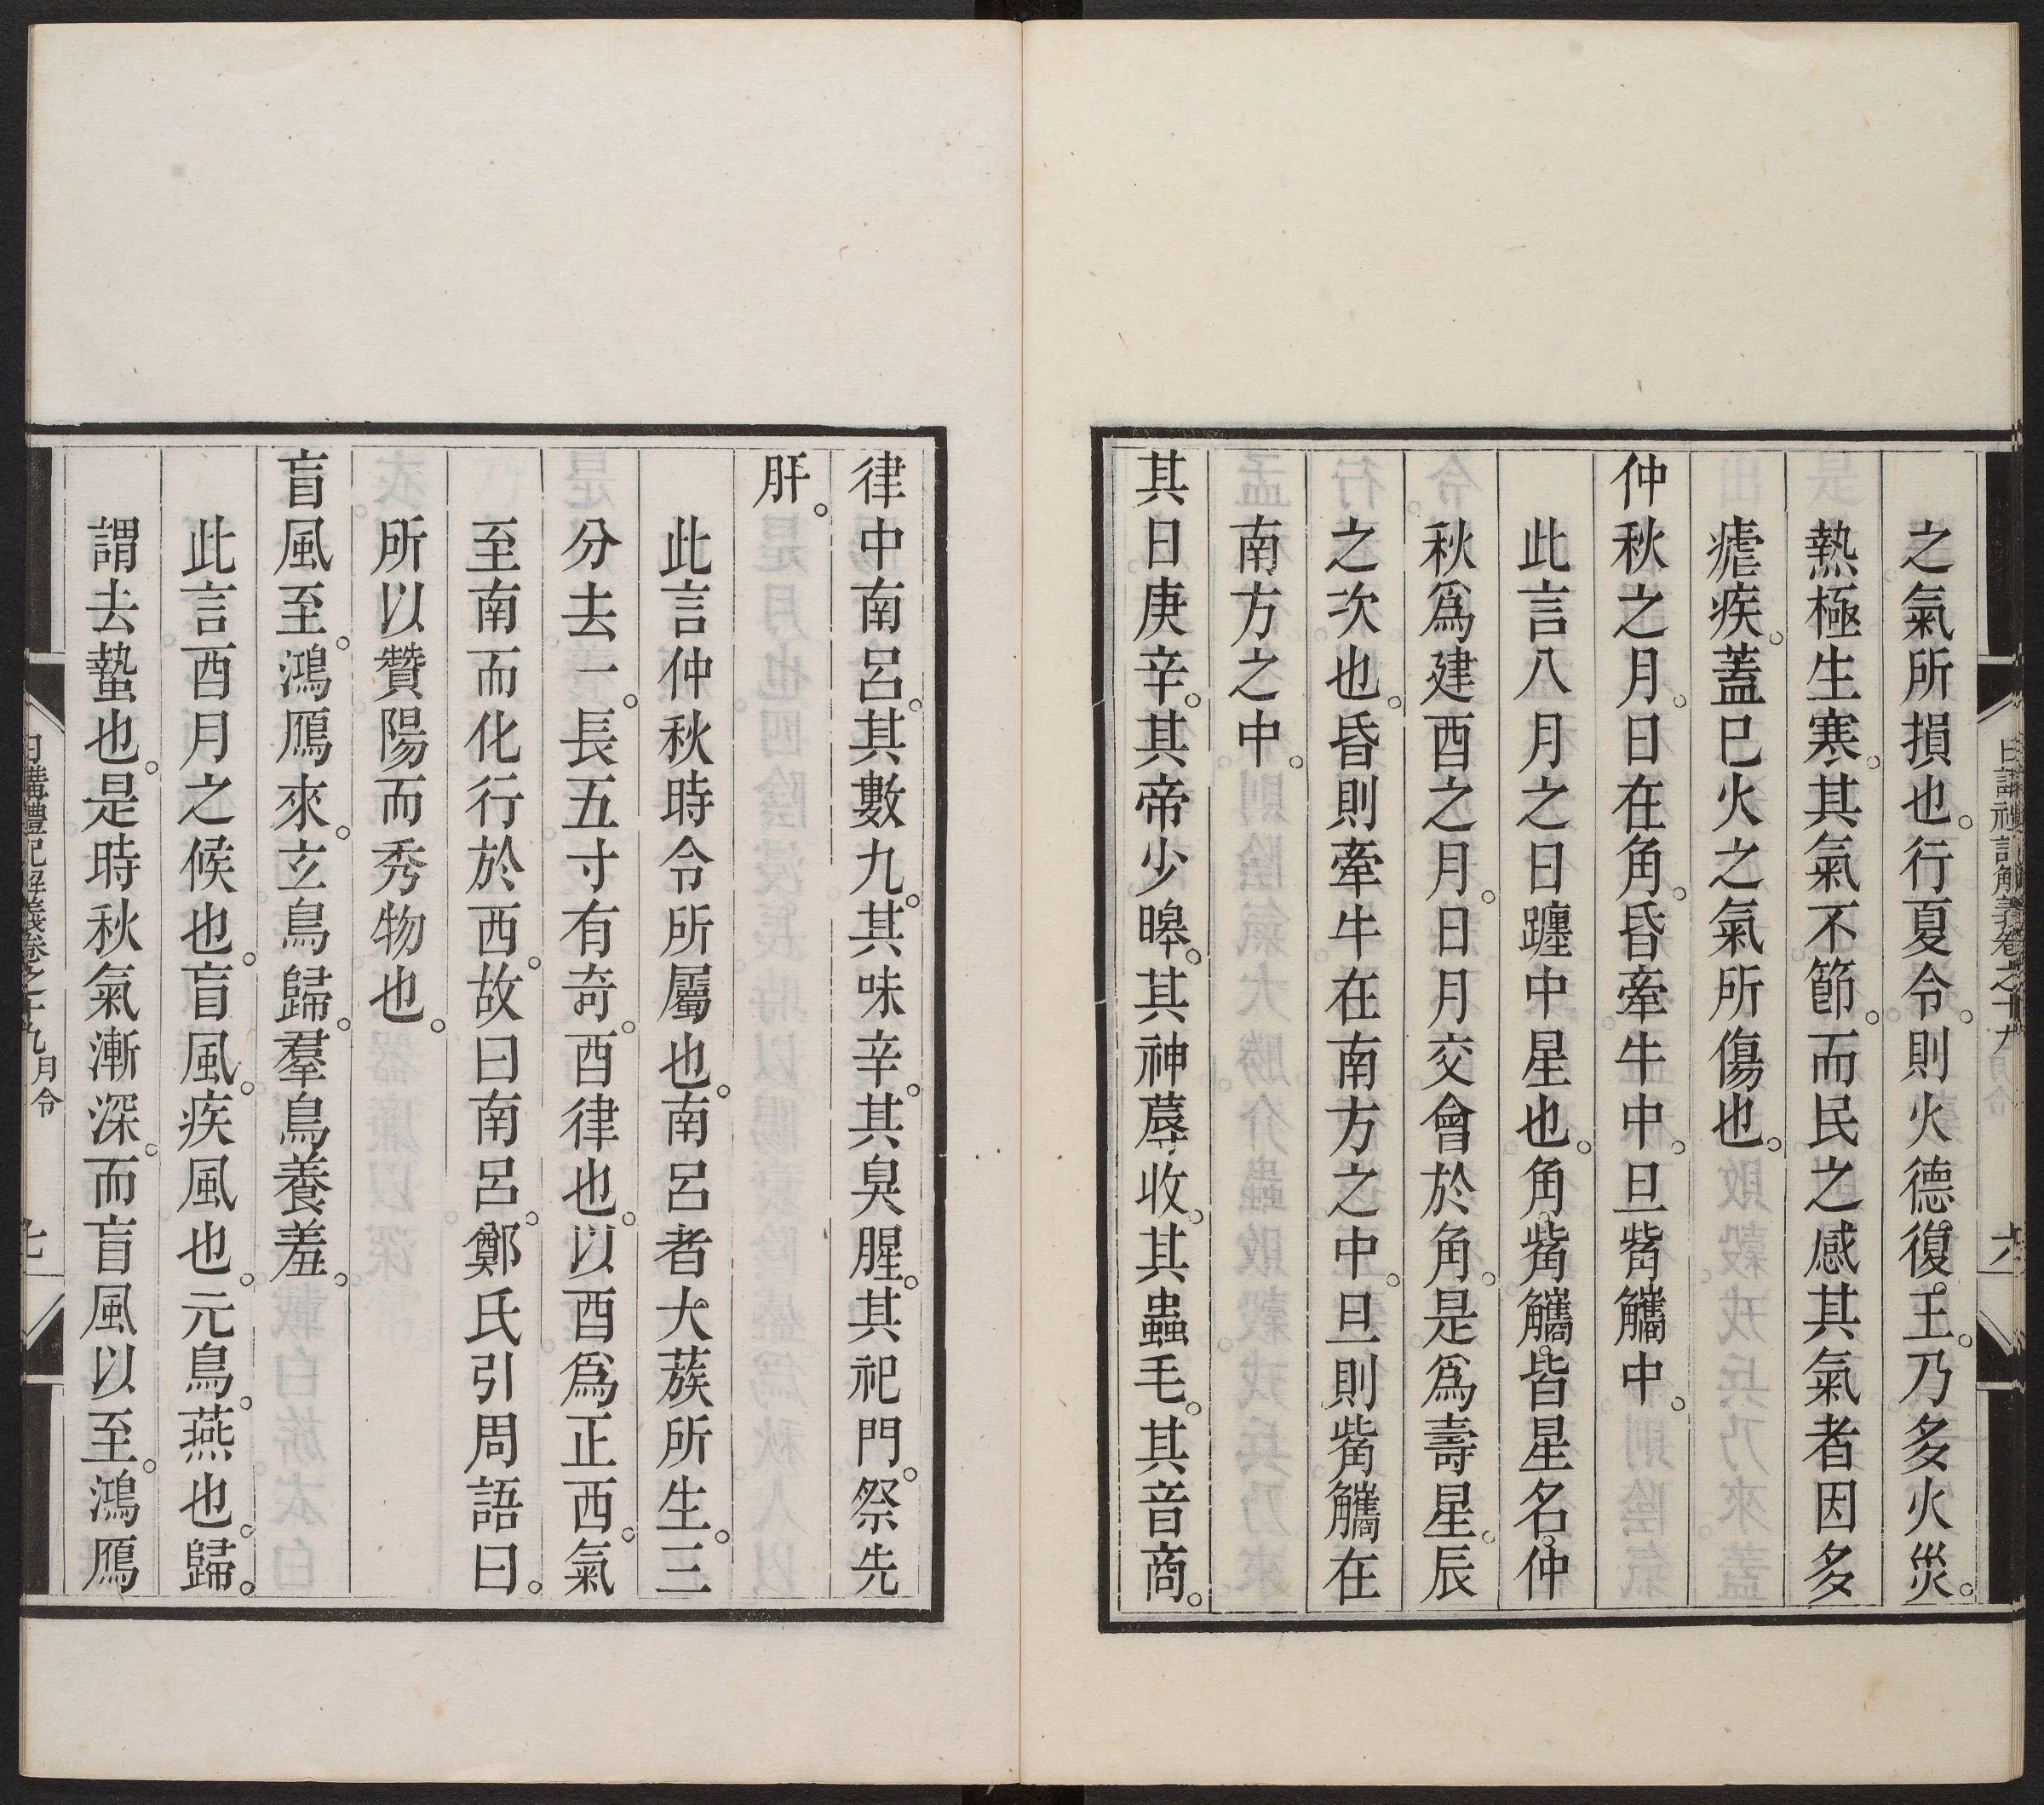 之氣所損也。行夏令。則火德復王。乃多火災。
熱極生寒。其氣不節。而民之感其氣者因多
瘧疾。蓋巳火之氣所傷也。
仲秋之月。日在角。昏牽牛中。旦觜觿中。
此言八月之日躔中星也。角。觜觿。皆星名。仲
秋爲建酉之月。日月交會於角。是爲壽星。辰
之次也。昏則牽牛在南方之中。旦則觜觿在
南方之中。
其日庚辛。其帝少皥。其神蓐收。其蟲毛。其音商。
律中南呂。其數九。其味辛。其臭腥。其祀門。祭先
肝。
此言仲秋時令所屬也。南呂者大蔟所生。三
分去一。長五寸有奇。酉律也。以酉爲正西。氣
至南而化行於西。故曰南呂。鄭氏引周語曰。
所以贊陽而秀物也。
盲風至。鴻鴈來。玄鳥歸。羣鳥養羞。
此言酉月之候也。盲風。疾風也。元鳥。燕也。歸。
謂去蟄也。是時秋氣漸深。而盲風以至。鴻鴈
日講禮記解義卷之十九 月令 七